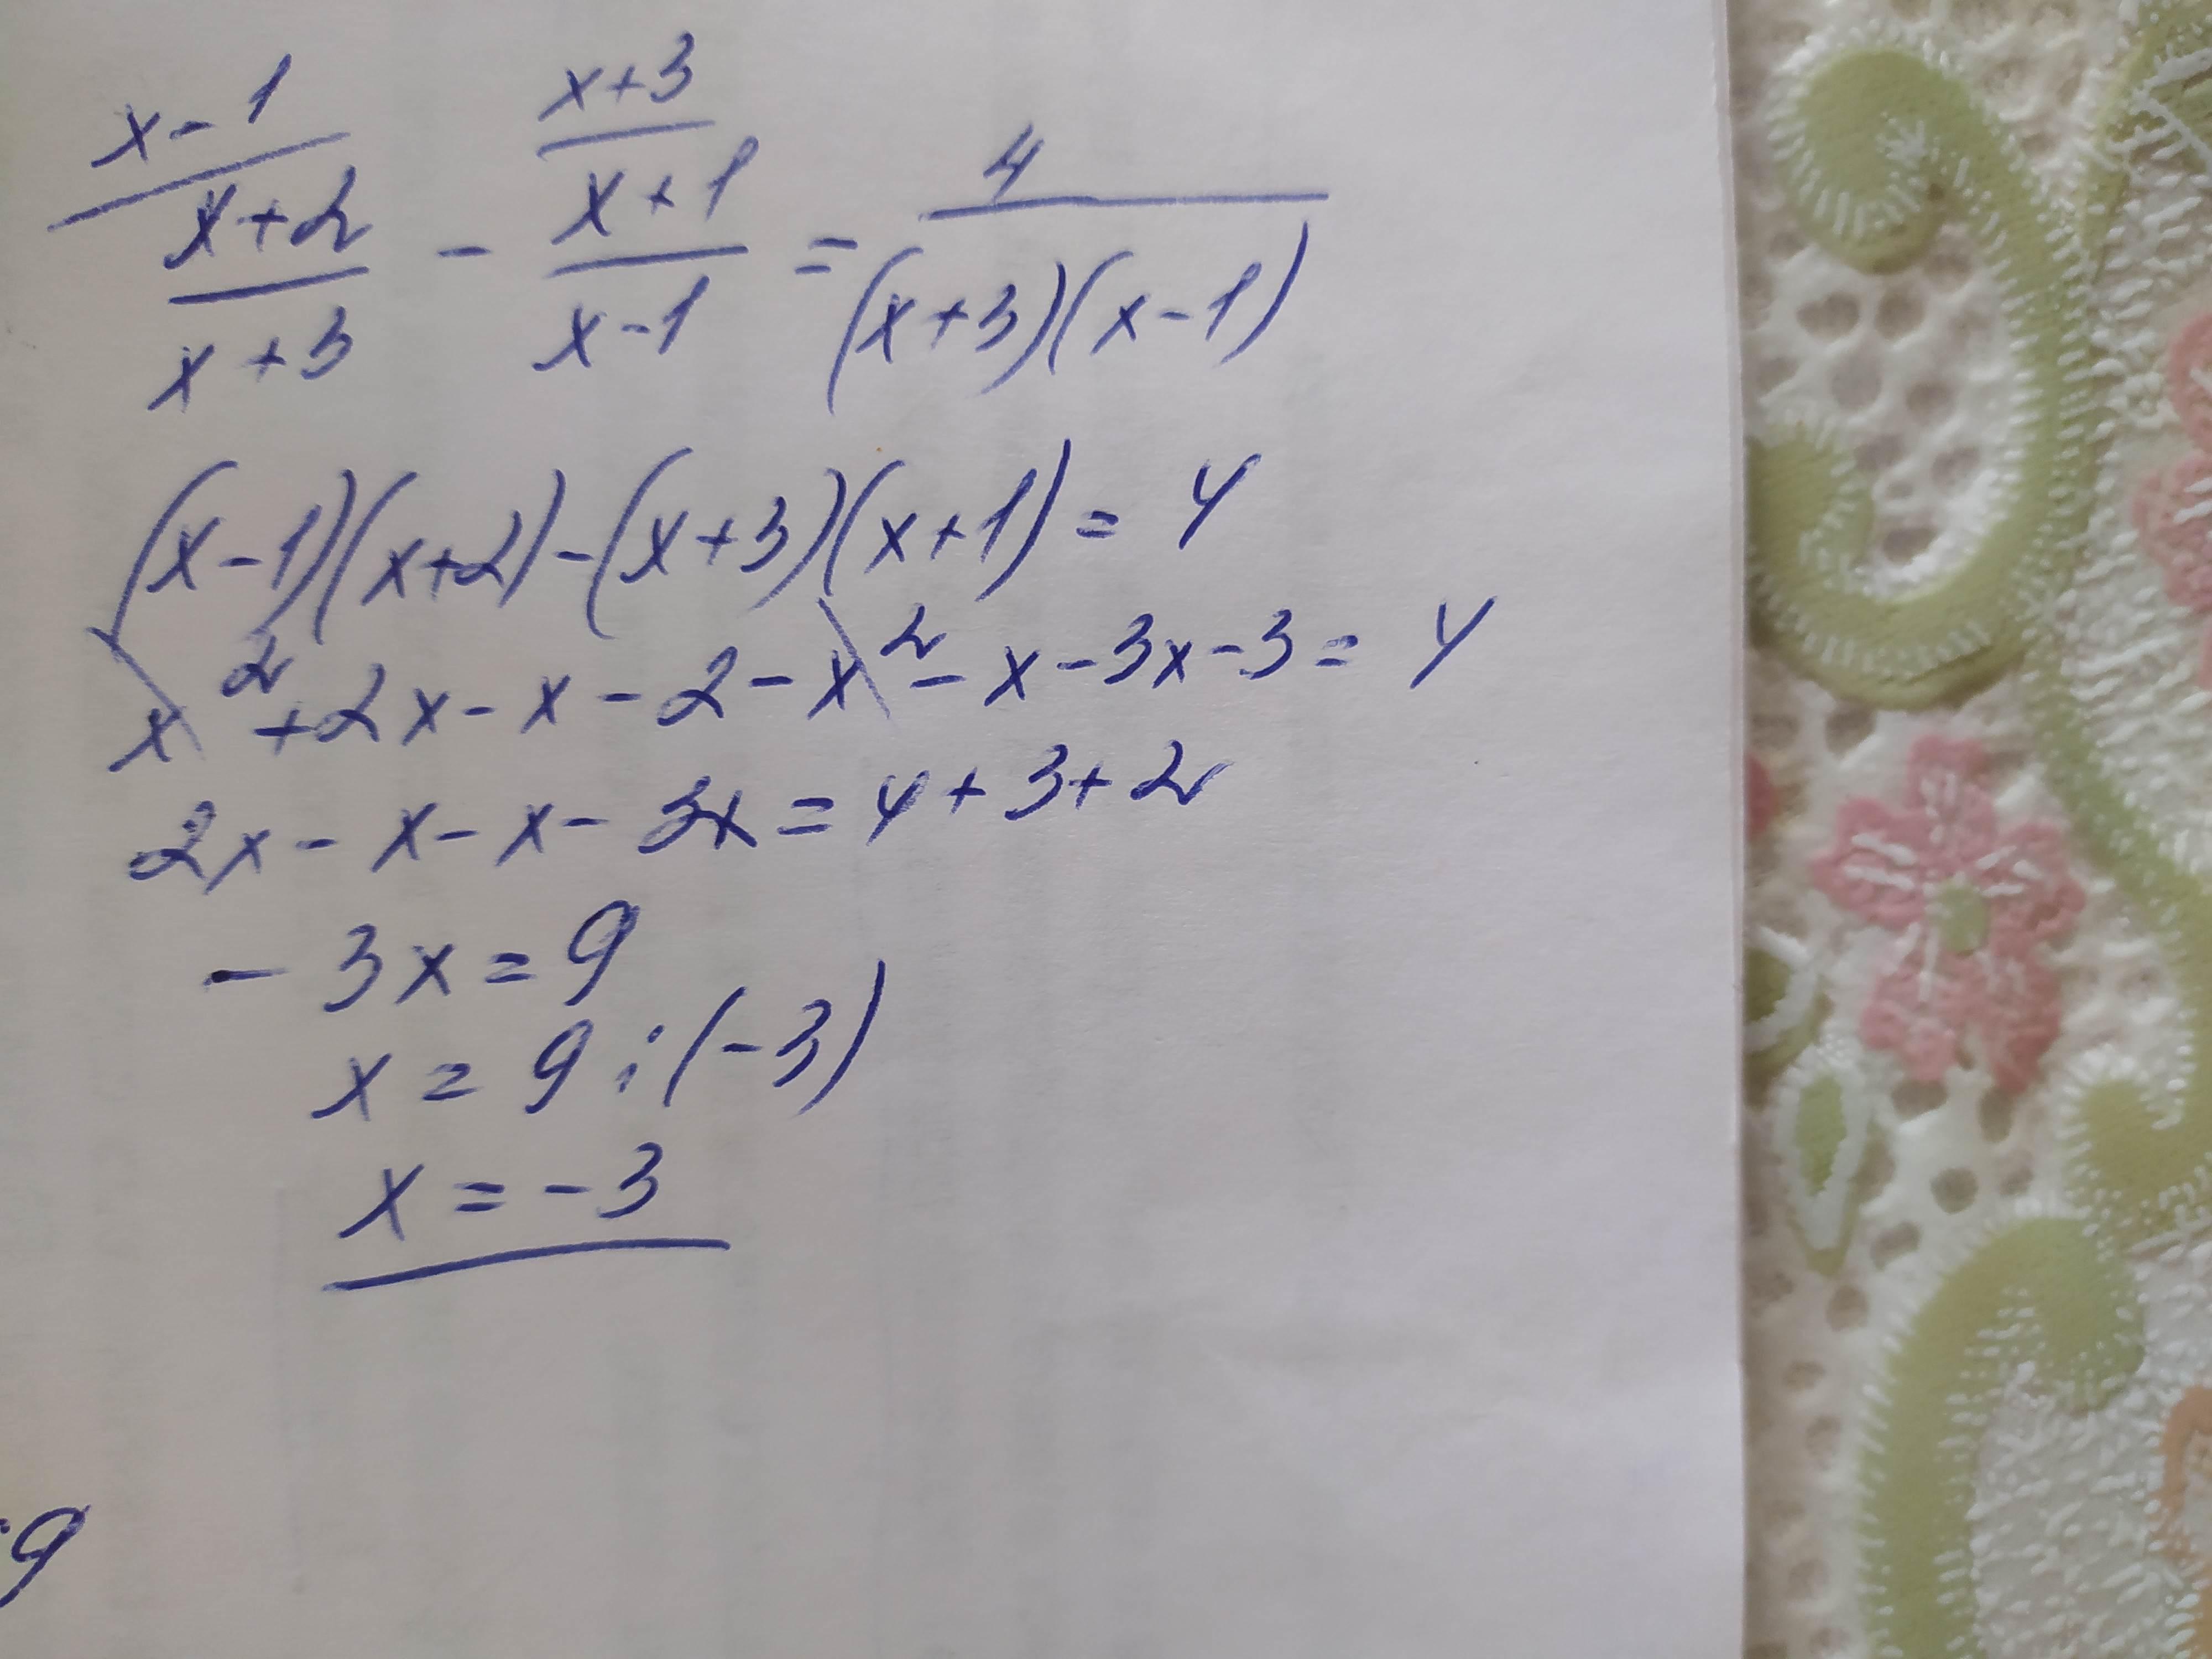 x-1 x+3
x+2 - x+1 = 4
x+3 x-1 (x+3)(x-1)
(x-1)(x+2)-(x+3)(x+1)=4
x²+2x-x-2-x²-x-3x-3=4
2x-x-x-3x=4+3+2
-3x=9
x=9:(-3)
x=-3
:9